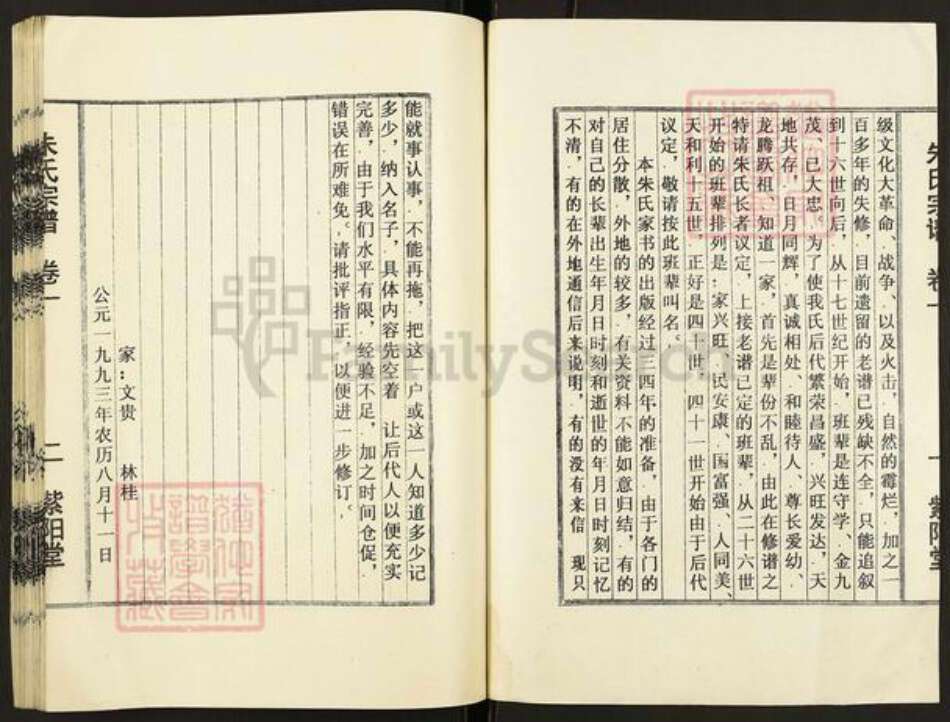 级文化大革命、战争、以及火击，自然的霉烂，加之一
百多年的失修，目前遗留的老谱已残缺不全，只能追叙
到十六世向后，从十七世纪开始，班辈是连守学、金九
茂、已大忠。为了使我氏后代繁荣昌盛，兴旺发达，天
地共存，日月同辉，真诚相处、和睦待人、尊长爱幼、
龙腾跃祖、知道一家，首先是辈份不乱，由此在修谱之
特请朱氏长者议定，上接老谱已定的班辈，从二十六世
开始的班辈排列是：家兴旺、民安康、国富强、人同美、
天和利十五世，正好是四十世，四十一世开始由于后代
议定，敬请按此班辈叫名。
本朱氏家书的出版经过三四年的准备，由于各门的
居住分散，外地的较多，有关资料不能如意归结，有的
对自己的长辈出生年月日时刻和逝世的年月日时刻记忆
不清，有的在外地通信后来说明，有的没有来信 现只
朱氏宗谱 卷一 一 紫阳堂
能就事认事，不能再拖，把这一户或这一人知道多少记
多少，纳入名子，具体内容先空着 让后代人以便充实
完善，由于我们水平有限，经验不足，加之时间仓促，
错误在所难免。请批评指正，以便进一步修订。
家：文贵 林桂
公元一九九三年农历八月十一日
朱氏宗谱 卷一 二 紫阳堂
FamilySearch